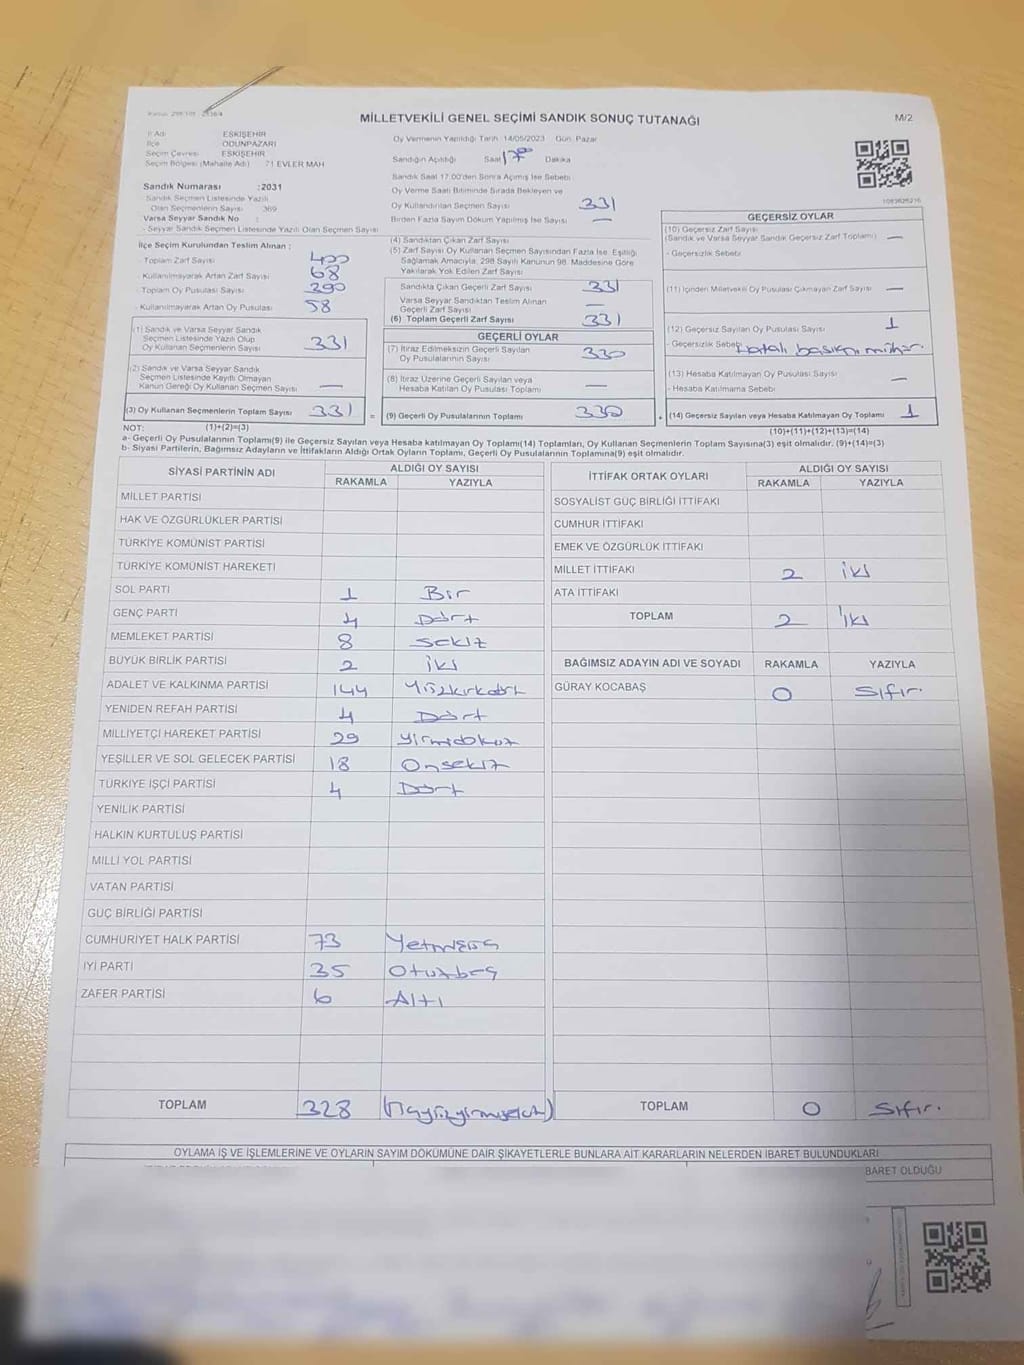 MİLLETVEKİLİ GENEL SEÇİMİ SANDIK SONUÇ TUTANAĞI
M/2
İl Adı ESKİŞEHİR
İlçe ODUNPAZARI
Seçim Çevresi ESKİŞEHİR
Seçim Bölgesi (Mahalle Adı) 71 EVLER MAH
Sandık Numarası :2031
Sandık Seçmen Listesinde Yazılı
Olan Seçmenlerin Sayısı : 369
Varsa Seyyar Sandık No :
- Seyyar Sandık Seçmen Listesinde Yazılı Olan Seçmen Sayısı
Oy Vermenin Yapıldığı Tarih 14/05/2023 Gün Pazar
Sandığın Açıldığı Saat 17 00 Dakika
Sandık Saat 17:00'den Sonra Açımış İse Sebebi
Oy Verme Saati Bitiminde Sırada Bekleyen ve
Oy Kullandırılan Seçmen Sayısı 331
Birden Fazla Sayım Döküm Yapılmış İse Sayısı —
1083626216
İlçe Seçim Kurulundan Teslim Alınan :
- Toplam Zarf Sayısı 400
- Kullanılmayarak Artan Zarf Sayısı 68
- Toplam Oy Pusulası Sayısı 390
- Kullanılmayarak Artan Oy Pusulası 58
(1) Sandık ve Varsa Seyyar Sandık
Seçmen Listesinde Yazılı Olup
Oy Kullanan Seçmenlerin Sayısı 331
(2) Sandık ve Varsa Seyyar Sandık
Seçmen Listesinde Kayıtlı Olmayan
Kanun Gereği Oy Kullanan Seçmen Sayısı —
(3) Oy Kullanan Seçmenlerin Toplam Sayısı 331 =
(1)+(2)=(3)
(4) Sandıktan Çıkan Zarf Sayısı
(5) Zarf Sayısı Oy Kullanan Seçmen Sayısından Fazla İse, Eşitliği
Sağlamak Amacıyla, 298 Sayılı Kanunun 98. Maddesine Göre
Yakılarak Yok Edilen Zarf Sayısı
Sandıkta Çıkan Geçerli Zarf Sayısı 331
Varsa Seyyar Sandıktan Teslim Alınan
Geçerli Zarf Sayısı —
(6) Toplam Geçerli Zarf Sayısı 331
GEÇERLİ OYLAR
(7) İtiraz Edilmeksizin Geçerli Sayılan
Oy Pusulalarının Sayısı 330
(8) İtiraz Üzerine Geçerli Sayılan veya
Hesaba Katılan Oy Pusulası Toplamı —
(9) Geçerli Oy Pusulalarının Toplamı 330 +
GEÇERSİZ OYLAR
(10) Geçersiz Zarf Sayısı
(Sandık ve Varsa Seyyar Sandık Geçersiz Zarf Toplamı) —
- Geçersizlik Sebebi
(11) İçinden Milletvekili Oy Pusulası Çıkmayan Zarf Sayısı —
(12) Geçersiz Sayılan Oy Pusulası Sayısı 1
- Geçersizlik Sebebi Hatalı basılan mühür.
(13) Hesaba Katılmayan Oy Pusulası Sayısı —
- Hesaba Katılmama Sebebi
(14) Geçersiz Sayılan veya Hesaba Katılmayan Oy Toplamı 1
(10)+(11)+(12)+(13)=(14)
NOT:
a- Geçerli Oy Pusulalarının Toplamı(9) ile Geçersiz Sayılan veya Hesaba katılmayan Oy Toplamı(14) Toplamları, Oy Kullanan Seçmenlerin Toplam Sayısına(3) eşit olmalıdır. (9)+(14)=(3)
b- Siyasi Partilerin, Bağımsız Adayların ve İttifakların Aldığı Ortak Oyların Toplamı, Geçerli Oy Pusulalarının Toplamına(9) eşit olmalıdır.
SİYASİ PARTİNİN ADI ALDIĞI OY SAYISI
RAKAMLA YAZIYLA
MİLLET PARTİSİ
HAK VE ÖZGÜRLÜKLER PARTİSİ
TÜRKİYE KOMÜNİST PARTİSİ
TÜRKİYE KOMÜNİST HAREKETİ
SOL PARTİ 1 Bir
GENÇ PARTİ 4 Dört
MEMLEKET PARTİSİ 8 Sekiz
BÜYÜK BİRLİK PARTİSİ 2 iki
ADALET VE KALKINMA PARTİSİ 144 Yüzkırkdört
YENİDEN REFAH PARTİSİ 4 Dört
MİLLİYETÇİ HAREKET PARTİSİ 29 Yirmidokuz
YEŞİLLER VE SOL GELECEK PARTİSİ 18 Onsekiz
TÜRKİYE İŞÇİ PARTİSİ 4 Dört
YENİLİK PARTİSİ
HALKIN KURTULUŞ PARTİSİ
MİLLİ YOL PARTİSİ
VATAN PARTİSİ
GÜÇ BİRLİĞİ PARTİSİ
CUMHURİYET HALK PARTİSİ 73 Yetmişüç
İYİ PARTİ 35 Otuzbeş
ZAFER PARTİSİ 6 Altı
TOPLAM 328
İTTİFAK ORTAK OYLARI ALDIĞI OY SAYISI
RAKAMLA YAZIYLA
SOSYALİST GÜÇ BİRLİĞİ İTTİFAKI
CUMHUR İTTİFAKI
EMEK VE ÖZGÜRLÜK İTTİFAKI
MİLLET İTTİFAKI 2 iki
ATA İTTİFAKI
TOPLAM 2 iki
BAĞIMSIZ ADAYIN ADI VE SOYADI RAKAMLA YAZIYLA
GÜRAY KOCABAŞ 0 Sıfır.
TOPLAM 0 Sıfır.
OYLAMA İŞ VE İŞLEMLERİNE VE OYLARIN SAYIM DÖKÜMÜNE DAİR ŞİKAYETLERLE BUNLARA AİT KARARLARIN NELERDEN İBARET BULUNDUKLARI
BARET OLDUĞU